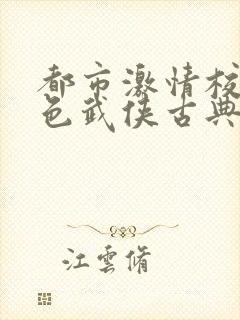 都市激情校
色武侠古典
江雲脩